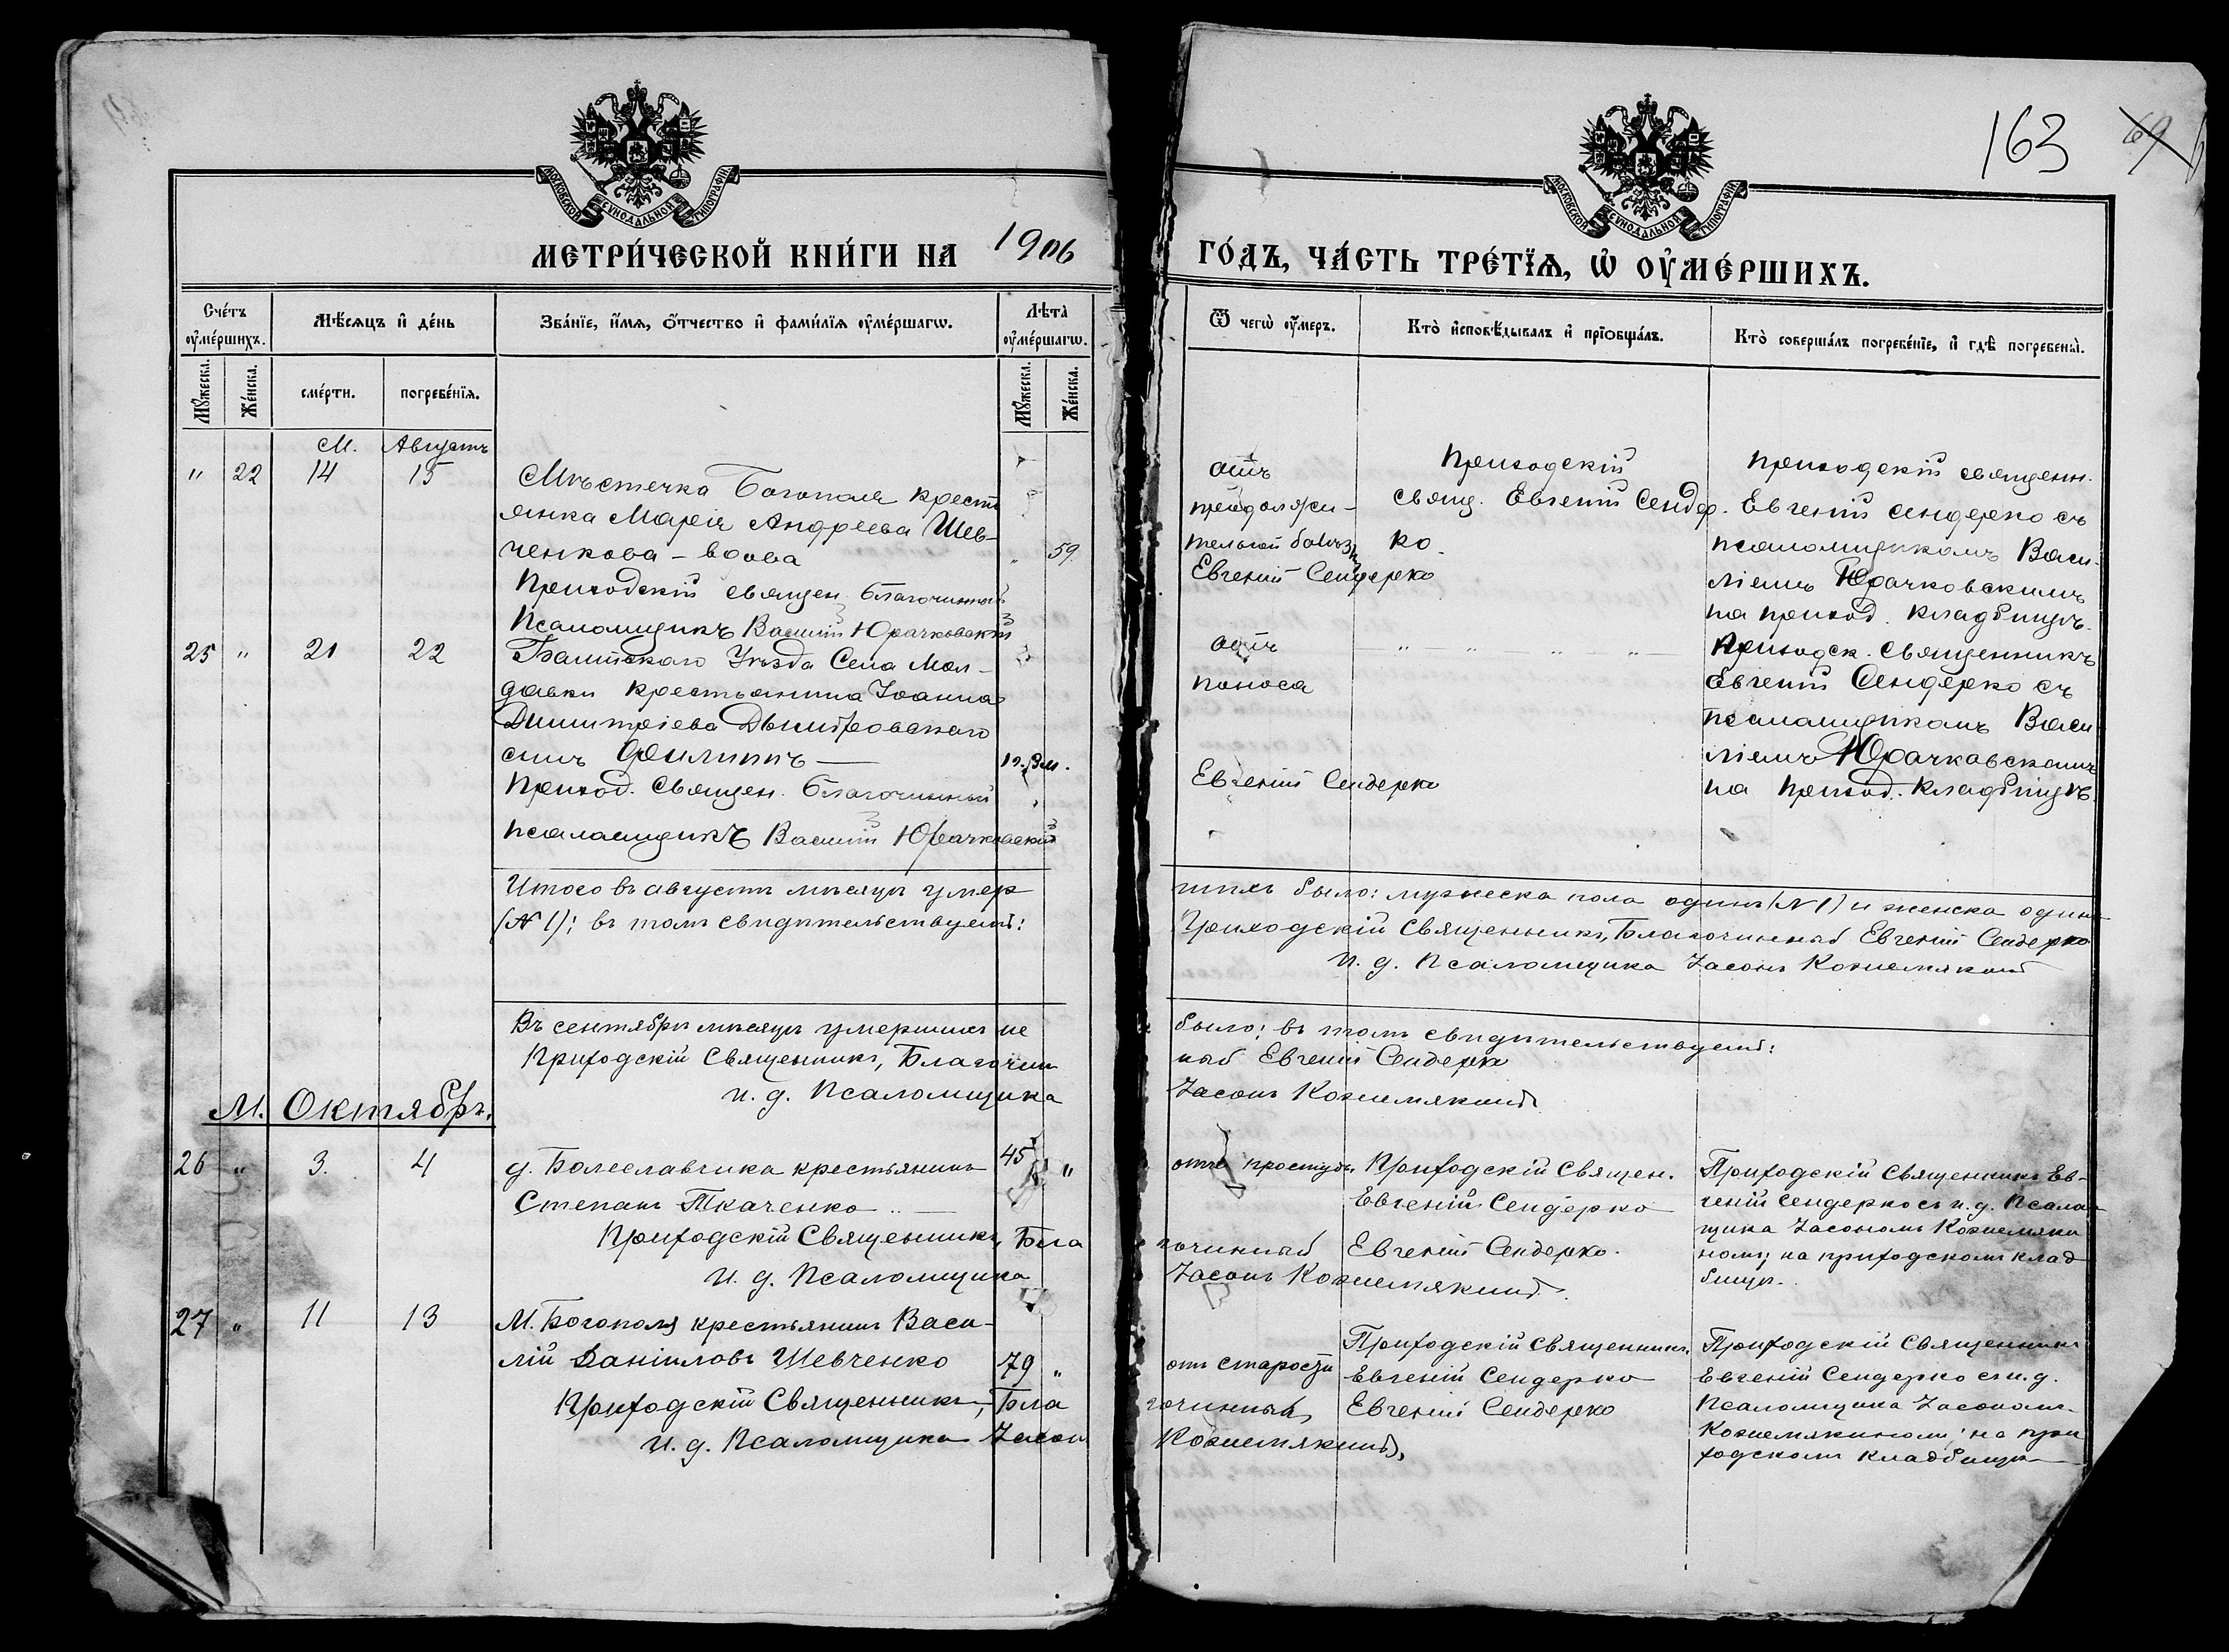 163 69
МОСКОВСКОЙ СѴНОДАЛЬНОЙ ТИПОГРАФІИ
МОСКОВСКОЙ СѴНОДАЛЬНОЙ ТИПОГРАФІИ
МЕТРИ́ЧЕСКОЙ КНИ́ГИ НА 1906
ГО́ДЪ, ЧА́СТЬ ТРЕ́ТЇѦ, Ѡ҆ ОУ҆МЕ́РШИХЪ.
Сче́тъ оу҆ме́ршихъ.
Мѣ́сѧцъ и҆ де́нь
Зва́нїе, и҆́мѧ, ѻ҆́тчество и҆ фами́лїѧ оу҆ме́ршагѡ.
Лѣ́та оу҆ме́ршагѡ.
Ѿ чегѡ̀ оу҆́меръ.
Кто̀ и҆сповѣ́дывалъ и҆ прїѡбща́лъ.
Кто̀ соверша́лъ погребе́нїе, и҆ гдѣ̀ погребены̀.
Мꙋ́жеска. Же́нска. сме́рти. погребе́нїѧ. Мꙋ́жеска. Же́нска.
М. Августъ
" 22 14 15
Мѣстечка Богополя крестъ
янка Марія Андреева Шев-
ченкова – вдова 59.
Приходскій священ. Благочинный
Псаломщикъ Василій Юрачковскій
отъ
продолжи-
тельной болѣзни
Евгеній Сендерко
Приходскій
свящ. Евгеній Сендер.
ко.
Приходскій священн.
Евгеній Сендерко съ
псаломщикомъ Васи-
ліемъ Юрачковскимъ
на приход. кладбищѣ.
25 " 21 22
Балтскаго Уѣзда Села Мол-
давки крестьянина Іоанна
Димитріева Дымитровскаго
сынъ Филиппъ —
Приход. Священ. Благочинный
псаломщикъ Василій Юрачковскій
отъ " " " "
поноса
Евгеній Сендерко
Приходск. Священникъ
Евгеній Сендерко съ
псаломщикомъ Васи
ліемъ Юрачковскимъ
на приход. кладбищѣ.
Итого въ августѣ мѣсяцѣ умер
(№ 1); въ томъ свидѣтельствуемъ:
шихъ было: мужеска пола одинъ (№ 1) и женска одинъ
Приходскій Священникъ, Благочинный Евгеній Сендерко
и. д. Псаломщика Іасонъ Кожемякинъ
Въ сентябрѣ мѣсяцѣ умершихъ не
Приходскій Священникъ, Благочин
и. д. Псаломщика
было; въ томъ свидѣтельствуемъ:
ный Евгеній Сендерко
Іасонъ Кожемякинъ
М. Октябрь.
26 " 3. 4
д. Болеславчика крестьянинъ 45 "
Степанъ Ткаченко
Приходскій Священникъ, Бла
и. д. Псаломщика
отъ простуды
гочинный Евгеній Сендерко.
Іасонъ Кожемякинъ.
Приходскій Священ.
Евгеній Сендерко
Приходскій Священникъ Ев-
геній Сендерко съ и. д. Псалом
щика Іасономъ Кожемяки
номъ; на приходскомъ клад
бищѣ.
27 " 11 13
М. Богополя крестьянинъ Васи-
лій Даніиловъ Шевченко 79 "
Приходскій Священникъ, Бла
и. д. Псаломщика Іасон
отъ старости
гочинный Евгеній Сендерко
Кожемякинъ
Приходскій Священникъ
Евгеній Сендерко
Приходскій Священникъ
Евгеній Сендерко съ и. д.
Псаломщика Іасономъ
Кожемякиномъ; на при
ходскомъ кладбищѣ